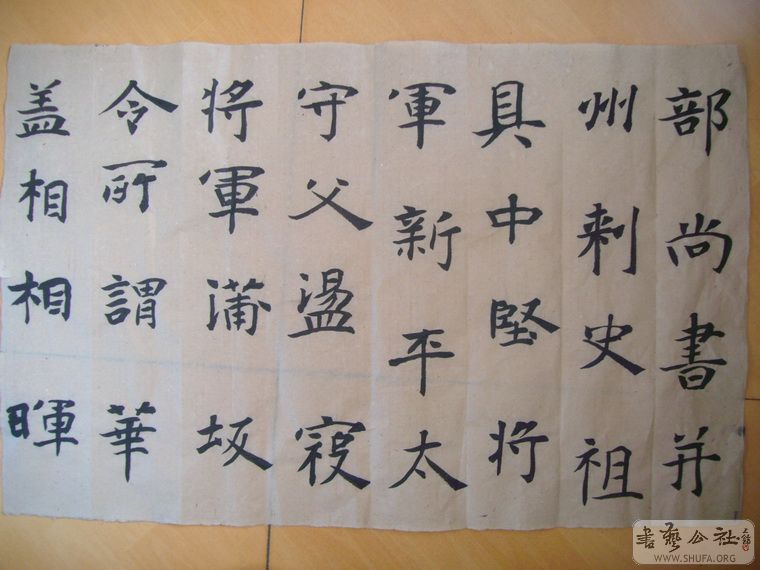 部尚書并
州刺史祖
具中堅将
軍新平太
守父盪寇
将軍蒲坂
令所謂華
盖相相暉
書藝公社
WWW.SHUFA.ORG